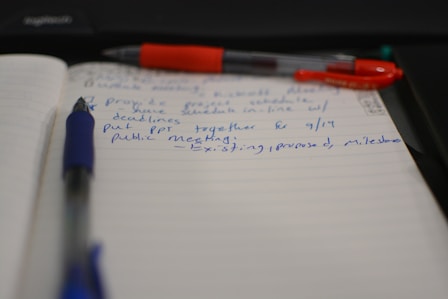 logitech
provide project schedule
- have schedule in-line w/
deadlines
put PPT together for 9/19
public meeting.
- Existing, proposed, milestone